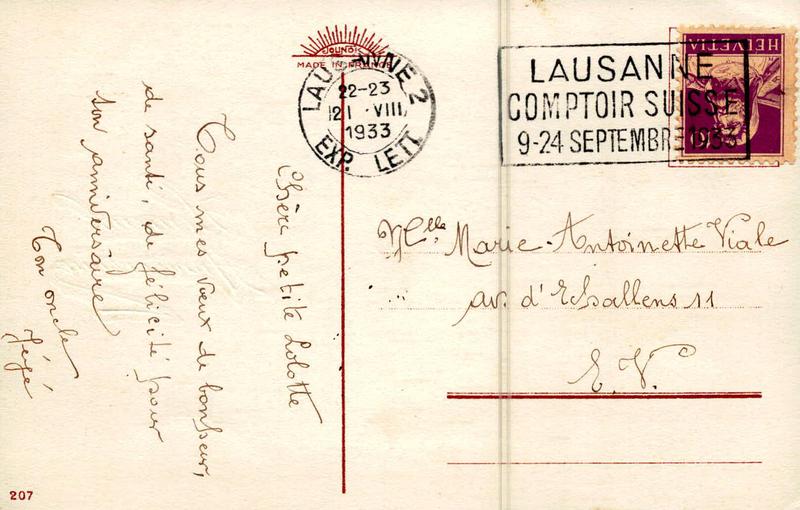 JOUNOT
MADE IN FRANCE
LAUSANNE 2
22-23
21 VIII
1933
EXP. LETT.
LAUSANNE
COMPTOIR SUISSE
9-24 SEPTEMBRE 1933
HELVETIA
10
Chère petite Lolotte
Tous mes vœux de bonheur,
de santé, de félicité pour
ton anniversaire
Ton oncle
Jégé
Mlle Marie-Antoinette Viale
av. d'Echallens 11
E. V.
207